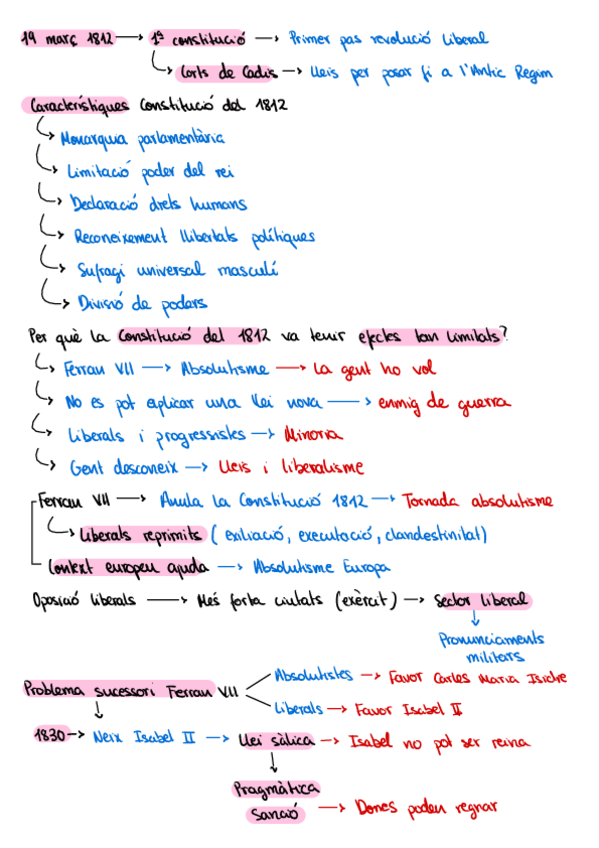 19 març 1812 → 1ª constitució → Primer pas revolució liberal
↳ Corts de Cadis → Lleis per posar fi a l'Antic Regim
Característiques Constitució del 1812
↳ Monarquia parlamentària
↳ Limitació poder del rei
↳ Declaració drets humans
↳ Reconeixement llibertats polítiques
↳ Sufragi universal masculí
↳ Divisió de poders
Per què la Constitució del 1812 va tenir efectes tan limitats?
↳ Ferran VII → Absolutisme → La gent ho vol
↳ No es pot aplicar una llei nova → enmig de guerra
↳ Liberals i progressistes → Minoria
↳ Gent desconeix → Lleis i liberalisme
Ferran VII → Anula la Constitució 1812 → Tornada absolutisme
↳ Liberals reprimits (exiliació, executació, clandestinitat)
Context europeu ajuda → Absolutisme Europa
Oposició liberals → Més forta ciutats (exèrcit) → Sector liberal
↓
Pronunciaments
militars
Absolutistes → Favor Carles Maria Isidre
Problema sucessori Ferran VII
Liberals → Favor Isabel II
↓
1830 → Neix Isabel II → Llei sàlica → Isabel no pot ser reina
↓
Pragmàtica
Sanció → Dones poden regnar